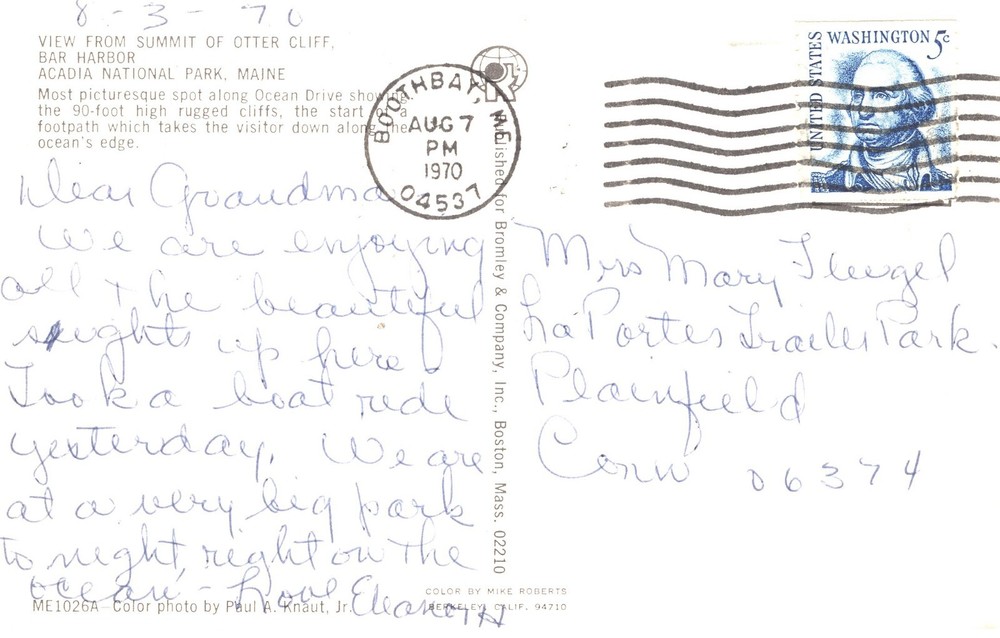 8-3-70
VIEW FROM SUMMIT OF OTTER CLIFF,
BAR HARBOR
ACADIA NATIONAL PARK, MAINE
Most picturesque spot along Ocean Drive showing
the 90-foot high rugged cliffs, the start of a
footpath which takes the visitor down along the
ocean's edge.
Dear Grandma
We are enjoying
all the beautiful
sights up here
Took a boat ride
yesterday. We are
at a very big park
to night, right on the
ocean - Love Eleanor H
ME1026A—Color photo by Paul A. Knaut, Jr.
COLOR BY MIKE ROBERTS
BERKELEY, CALIF. 94710
Published for Bromley & Company, Inc., Boston, Mass. 02210
BOOTHBAY, ME
AUG 7
PM
1970
04537
UNITED STATES
WASHINGTON 5c
Mrs Mary
La Portes Trailer Park.
Plainfield
Conn 06374